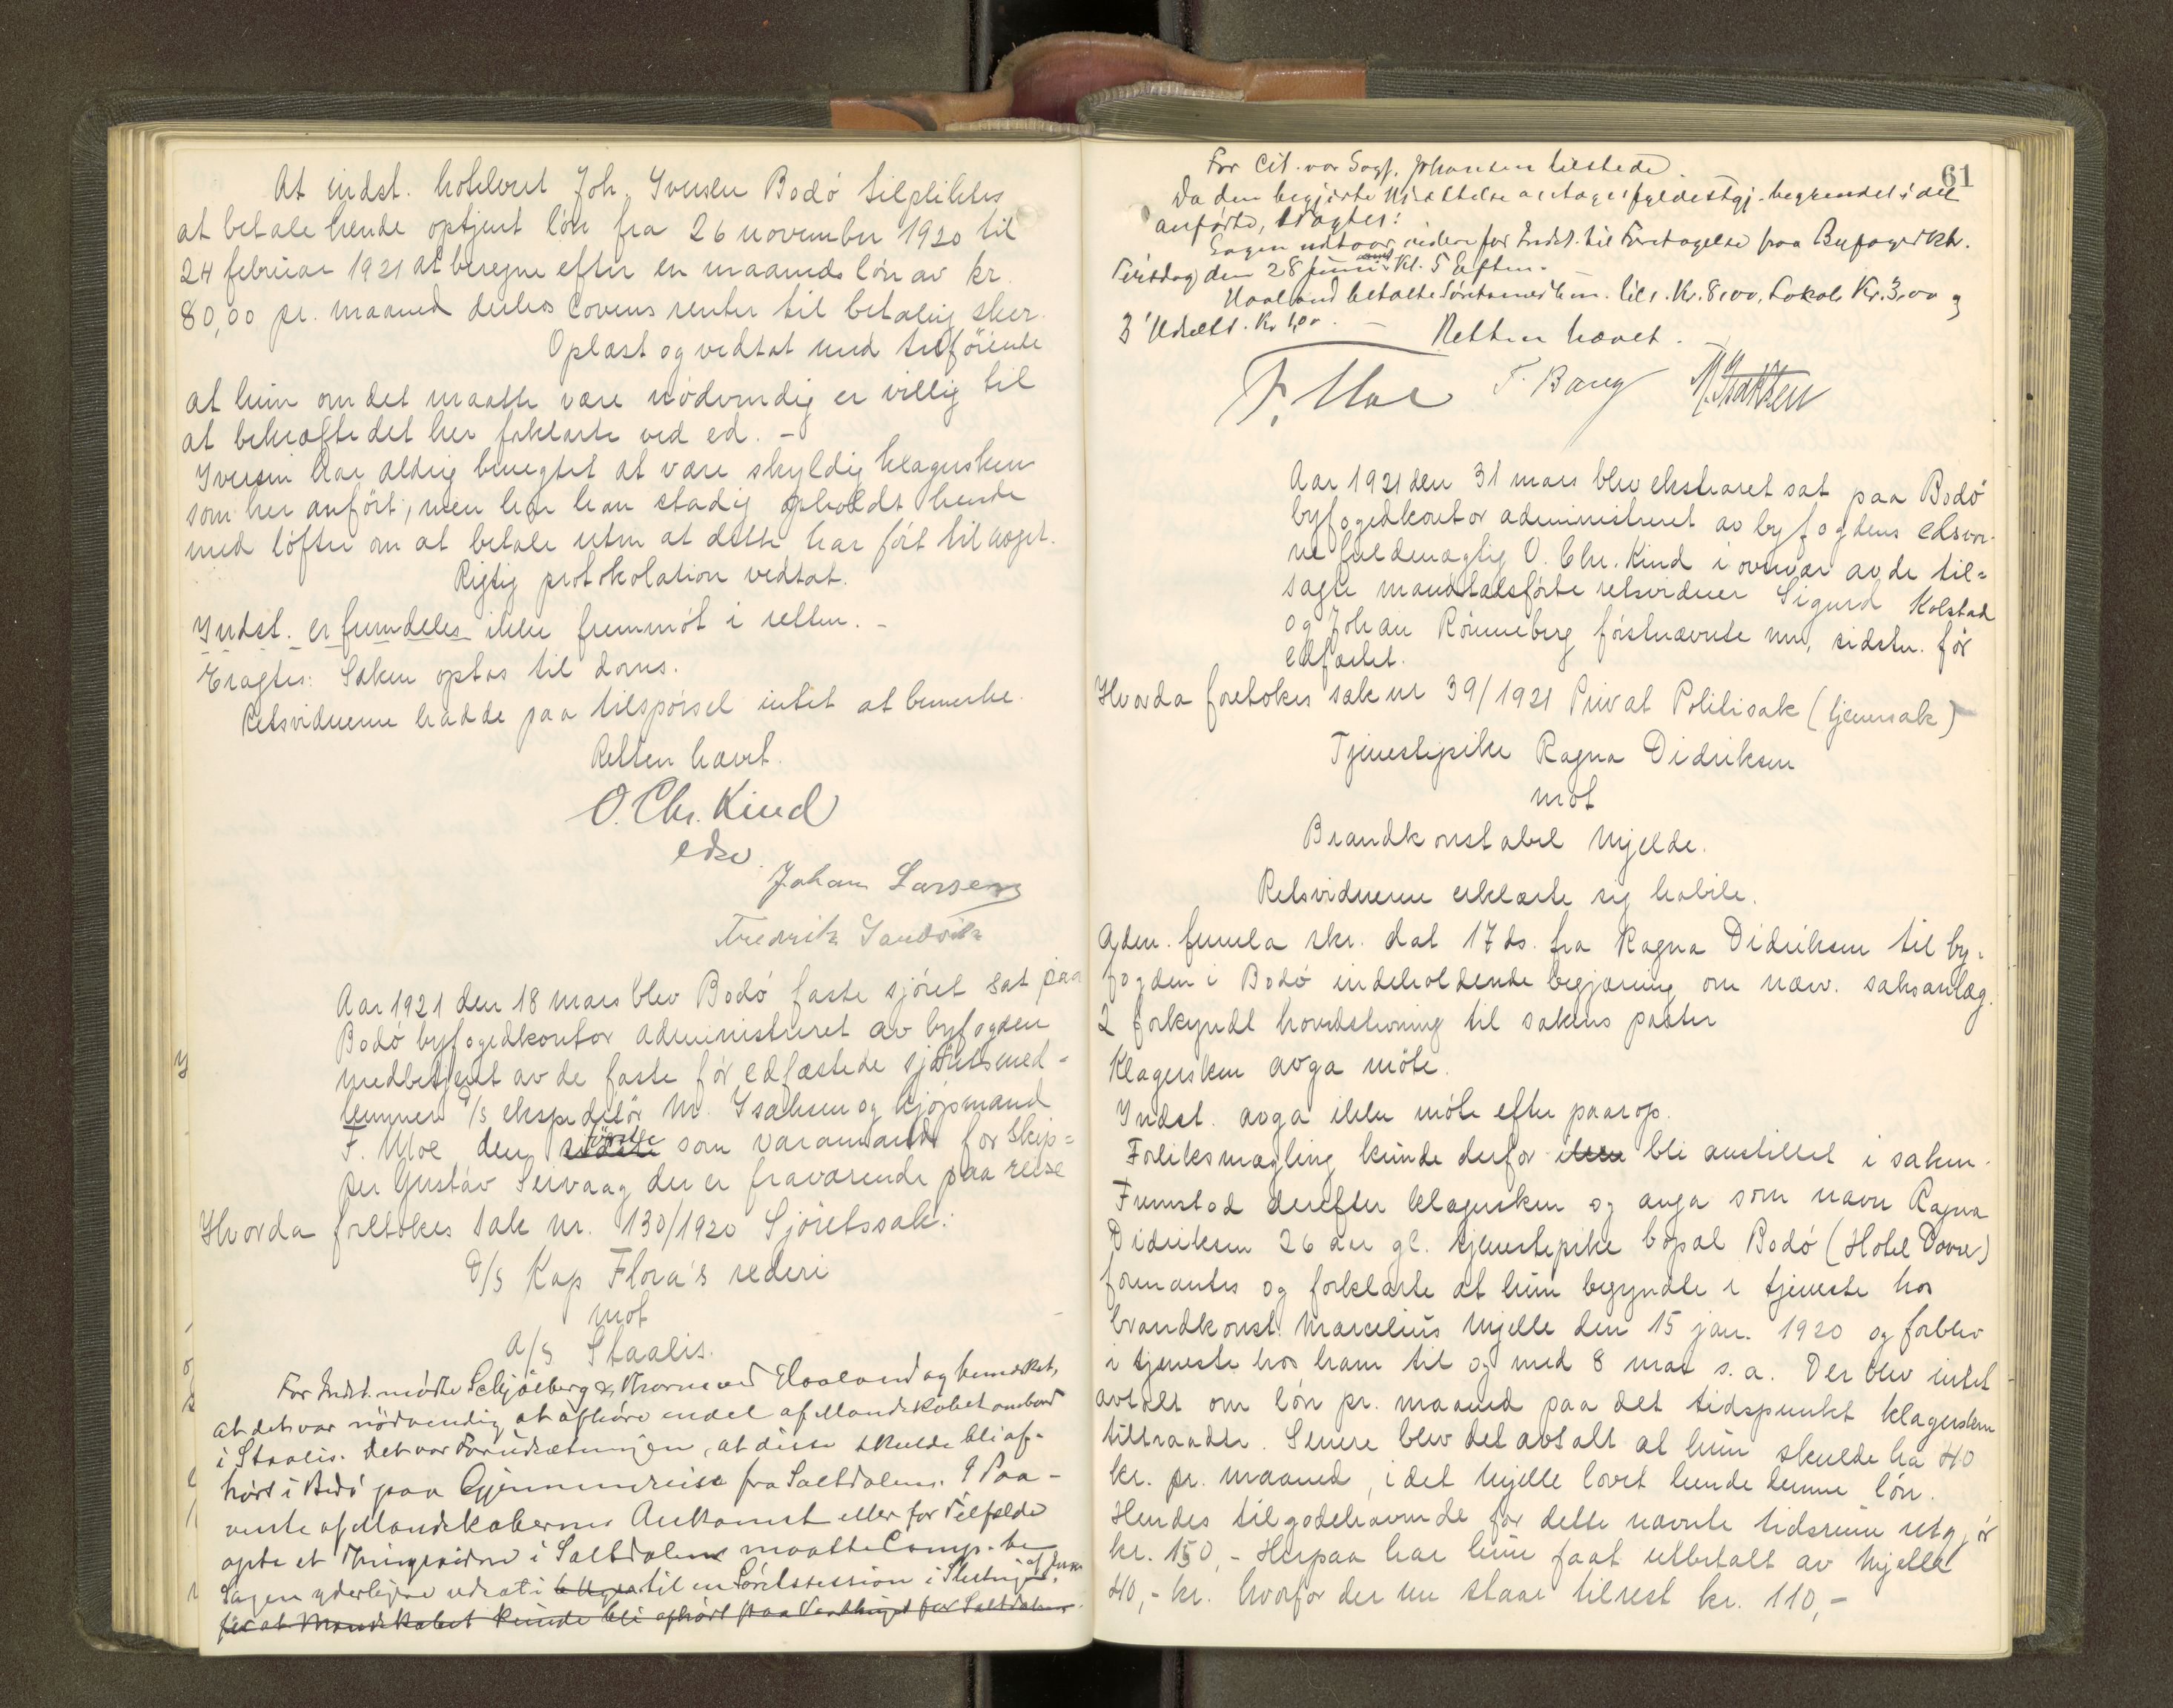 At indst. hotelvert Joh. Iversen Bodö tilpliktes
at betale hende optjent lön fra 26 november 1920 til
24 februar 1921 at beregne efter en maaneds lön av kr.
80,00 pr. maaned derhos lovens renter til betaling sker.
Oplæst og vedtat med tilföiende
at hun om det maatte være nödvendig er villig til
at bekræfte det her forklarte ved ed. –
Iversen har aldrig benegtet at være skyldig klagersken
som her anfört, men har han stadig opholdt hende
med löfter om at betale uten at dette har fört til noget.
Rigtig protokolation vedtat.
Indst. er fremdeles ikke fremmöt i retten. –
Eragtes: Saken optas til doms.
Retsvidnerne hadde paa tilspörsel intet at bemerke.
Retten hævet.
O. Chr. Kind
edsv.
Johan Larsen
Fredrik Sandvik
Aar 1921 den 18 mars blev Bodö faste sjöret sat paa
Bodö byfogedkontor administreret av byfogden
medbetjent av de faste för edfæstede sjöretsmed-
lemmer D/S ekspeditör M. Isaksen og kjöpmand
F. Moe den første som varamand for skip-
per Gustav Seivaag der er fraværende paa reise
Hvorda foretokes sak nr. 130/1920 Sjöretssak:
D/S Kap Flora's rederi
mot
A/S Staalis.
For Indst. mödte Schjölberg & Thorne ved Haaland og bemærket,
at det var nödvendig at afhöre endel af Mandskabet ombord
i Staalis. Det var Forudsætningen, at disse skulde bli af-
hört i Bodö paa Gjennemreise fra Saltdalen. I Paa-
vente af Mandskabernes Ankomst eller for Tilfælde
opta et Thingsvidne i Saltdalen maatte Comp. be
Sagen yderligere udsat i til en Söretssession i Slutningen af Juni
for at Mandskabet kunde bli afhört paa Vaarthinget for Saltdalen.
61
For Cit. var Sagf. Johansen tilstede.
Da den begjærte Udsættelse antages fyldestgj. begrundet i det
anförte, eragtes:
Sagen udstaar videre for Indst. til Foretagelse paa Byfogedktr.
Tirsdag den 28 Juni Kl. 5 Eftm.
Haaland betalte Söretsmedlem. tils. Kr. 8,00, Lokale Kr. 3,00 og
3 Udsætt. Kr 1,00. – Retten hævet.
F. Moe T. Bang M. Isaksen
Aar 1921 den 31 mars blev ekstraret sat paa Bodö
byfogedkontor administreret av byfogdens edsvor-
ne fuldmægtig O. Chr. Kind i overvær av de til-
sagte mandtalsförte retsvidner Sigurd Kolstad
og Johan Rönneberg förstnævnte nu, sidstn. för
edfæstet.
Hvorda foretokes sak nr 39/1921 Privat Politisak (tjenersak)
Tjenestepike Ragna Didriksen
mot
Brandkonstabel Mjelde.
Retsvidnerne erklærte sig habile.
Adm. fremla skr. dat 17 ds. fra Ragna Didriksen til by-
fogden i Bodö indeholdende begjæring om nærv. saksanlæg.
2 forkyndt hovedstevning til sakens parter
Klagersken avga möte.
Indst. avga ikke möte efter paarop.
Forliksmægling kunde derfor ikke bli anstillet i saken.
Fremstod derefter klagersken og avga som navn Ragna
Didriksen 26 aar gl. tjenestepike bopæl Bodö (Hotel Dovre)
formantes og forklarte at hun begyndte i tjeneste hos
brandkonst. Marcelius Mjelle den 15 jan. 1920 og forblev
i tjeneste hos ham til og med 8 mai s.a. Der blev intet
avtalt om lön pr. maaned paa det tidspunkt klagersken
tiltraadte. Senere blev det avtalt at hun skulde ha 40
kr. pr. maaned, idet Mjelle lovet hende denne lön.
Hendes tilgodehavende for dette nævnte tidsrum utgjör
kr. 150,- Herpaa har hun faat utbetalt av Mjelle
40,- kr. hvorfor der nu staar tilrest kr. 110,-